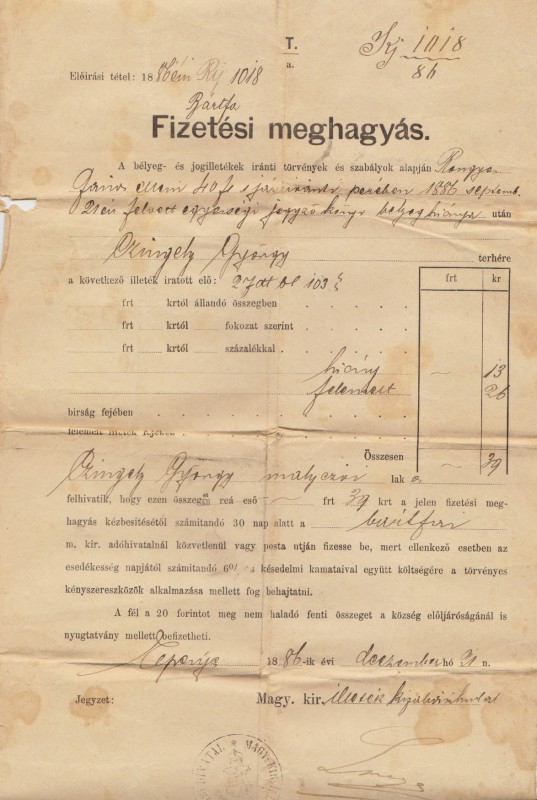 T.
a.
Kj 1018
86
Előirási tétel: 1886 évi Kj 1018
Bártfa
Fizetési meghagyás.
A bélyeg- és jogilletékek iránti törvények és szabályok alapján
János elleni 40 ft s jár. iránti perében 1886 septemb.
21én felvett egyességi jegyzőkönyv bélyeghiánya után
Czingely György terhére
a következő illeték iratott elő: 103
frt kr
frt krtól állandó összegben
frt krtól fokozat szerint
frt krtól százalékkal
hiány 13
felemelt 26
birság fejében
felemelt illeték fejében
Összesen — 39
Czingely György lak
felhivatik, hogy ezen összegből reá eső — frt 39 krt a jelen fizetési meg-
hagyás kézbesitésétől számitandó 30 nap alatt a bártfai
m. kir. adóhivatalnál közvetlenül vagy posta utján fizesse be, mert ellenkező esetben az
esedékesség napjától számitandó 6% késedelmi kamataival együtt költségére a törvényes
kényszereszközök alkalmazása mellett fog behajtatni.
A fél a 20 forintot meg nem haladó fenti összeget a község előljáróságánál is
nyugtatvány mellett befizetheti.
Eperjes 1886-ik évi deczember hó 21 n.
Jegyzet:
Magy. kir. illeték kiszabási hivatal